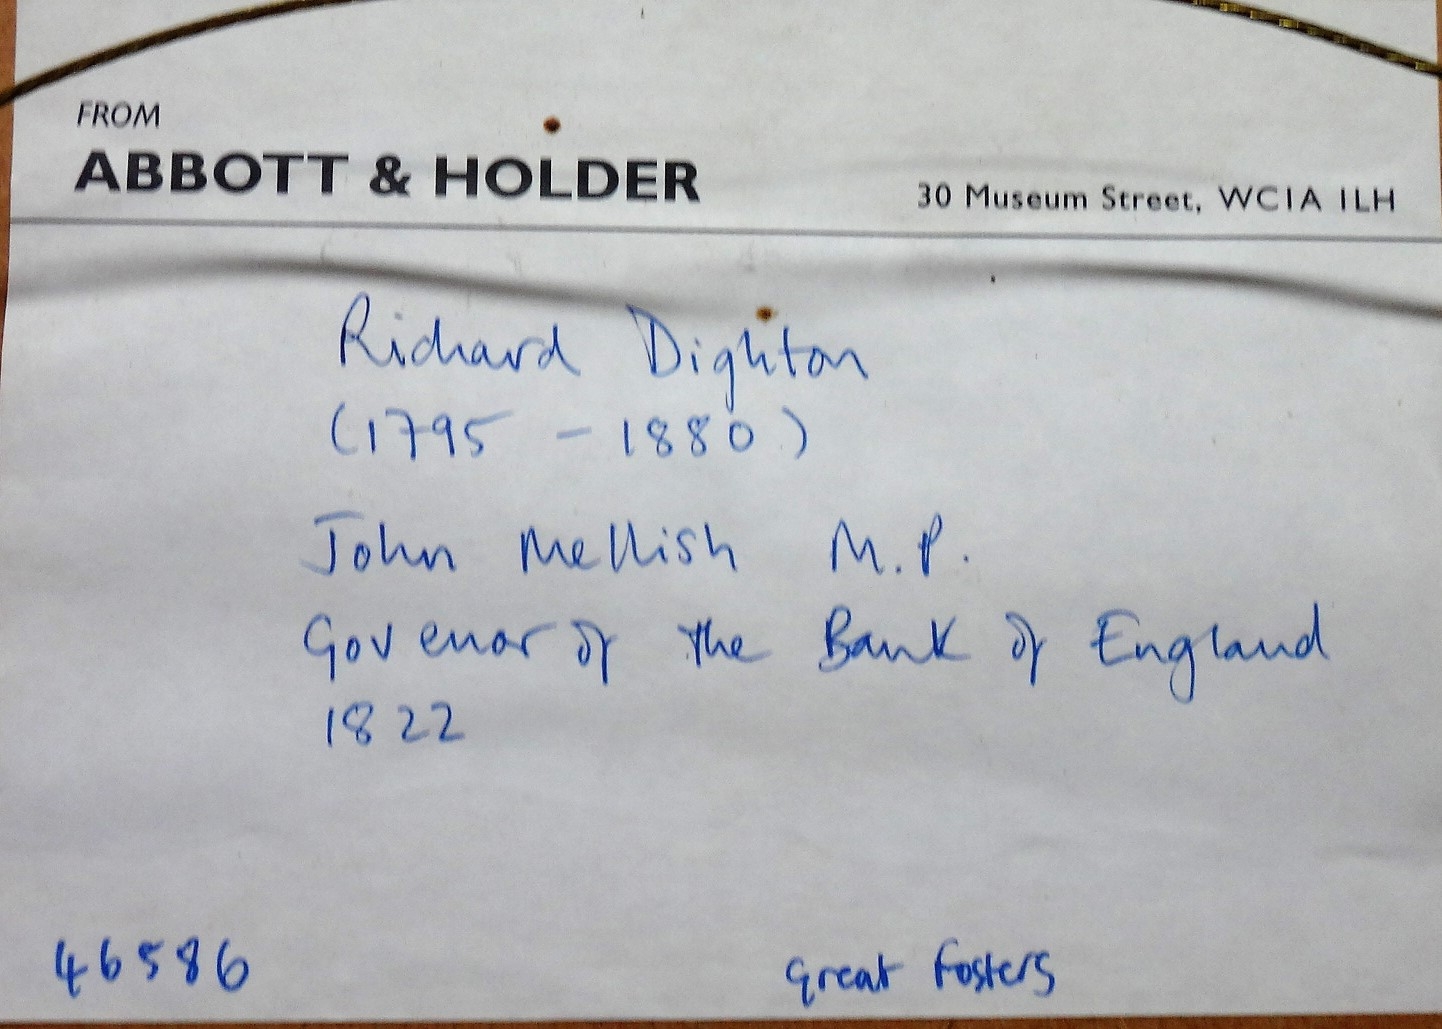 FROM
ABBOTT & HOLDER 30 Museum Street, WC1A 1LH
Richard Dighton
(1795 - 1880)
John Mellish M.P.
Govenor of the Bank of England
1822
46586 Great Fosters